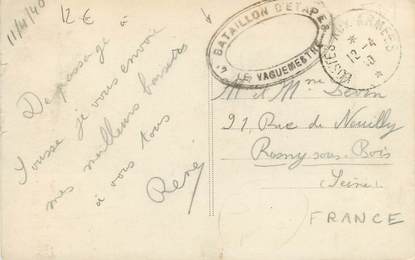 11/4/40
12 €
De passage à
Sousse je vous envoie
mes meilleurs baisers
à vous tous
René
BATAILLON D'ÉTAPES
LE VAGUEMESTRE
POSTES AUX ARMÉES
12-4
M et Mme Devin
91, Rue de Neuilly
Rosny-sous-Bois
(Seine)
FRANCE